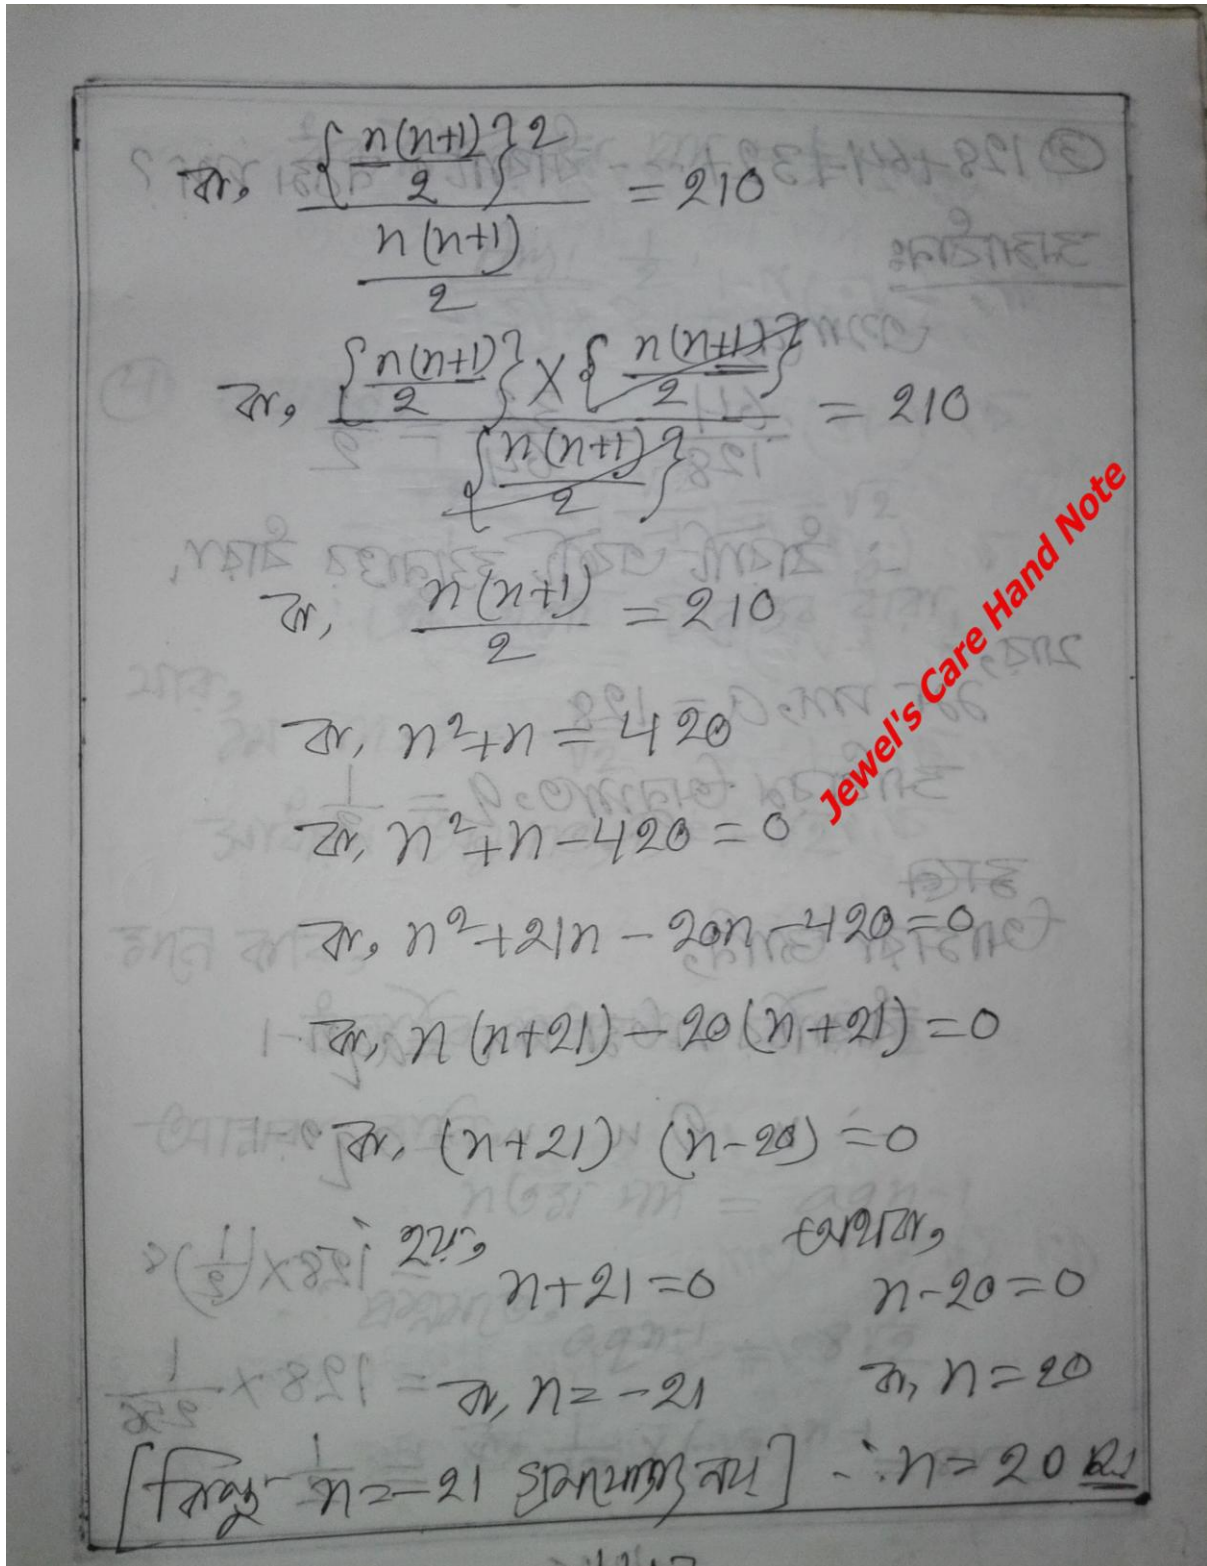 বা, {n(n+1)/2}² / n(n+1)/2 = 210
বা, {n(n+1)/2} × {n(n+1)/2} / {n(n+1)/2} = 210
বা, n(n+1)/2 = 210
বা, n²+n = 420
বা, n²+n-420 = 0
বা, n²+21n - 20n - 420 = 0
বা, n(n+21) - 20(n+21) = 0
বা, (n+21) (n-20) = 0
হয়, অথবা,
n+21 = 0 n-20 = 0
বা, n = -21 বা, n = 20
[কিন্তু n = -21 গ্রহণযোগ্য নয়] ∴ n = 20
Jewel's Care Hand Note